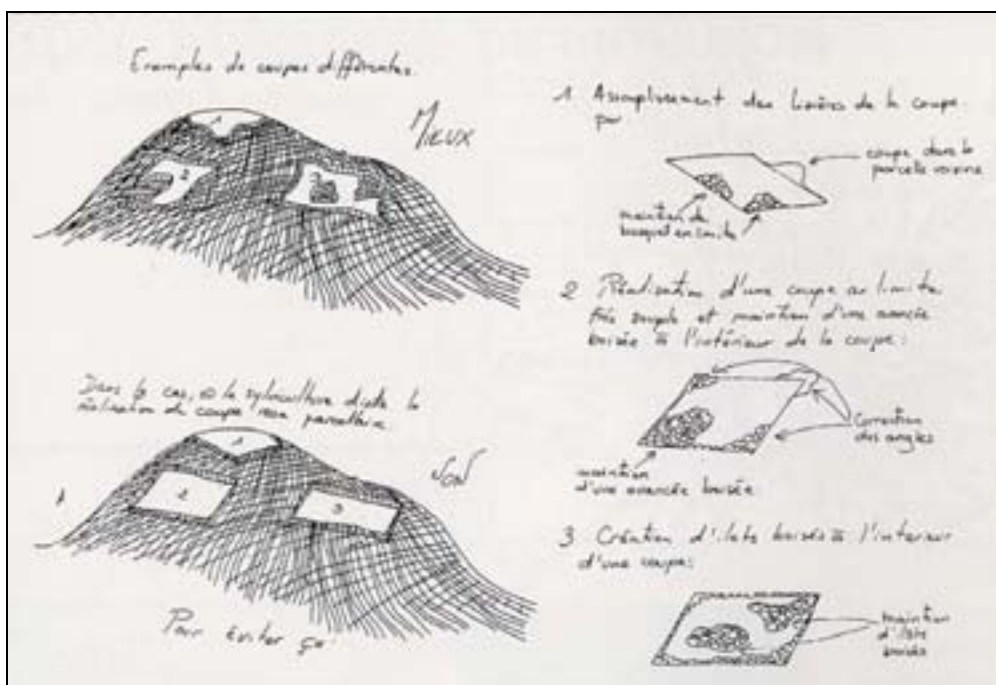 Exemples de coupes différentes.
MIEUX
1
2
3
Dans le cas, où la sylviculture dicte la
réalisation de coupe parcellaire
NON
1
2
3
Pour éviter ça
1 Assouplissement des lisières de la coupe
par
coupe dans la
parcelle voisine
maintien de
bosquet en limite
2 Réalisation d'une coupe limite
très souple et maintien d'une avancée
boisée à l'intérieur de la coupe:
Correction
des angles
maintien
d'une avancée boisée
3 Création d'ilots boisés à l'intérieur
d'une coupe:
maintien
d'ilots
boisés